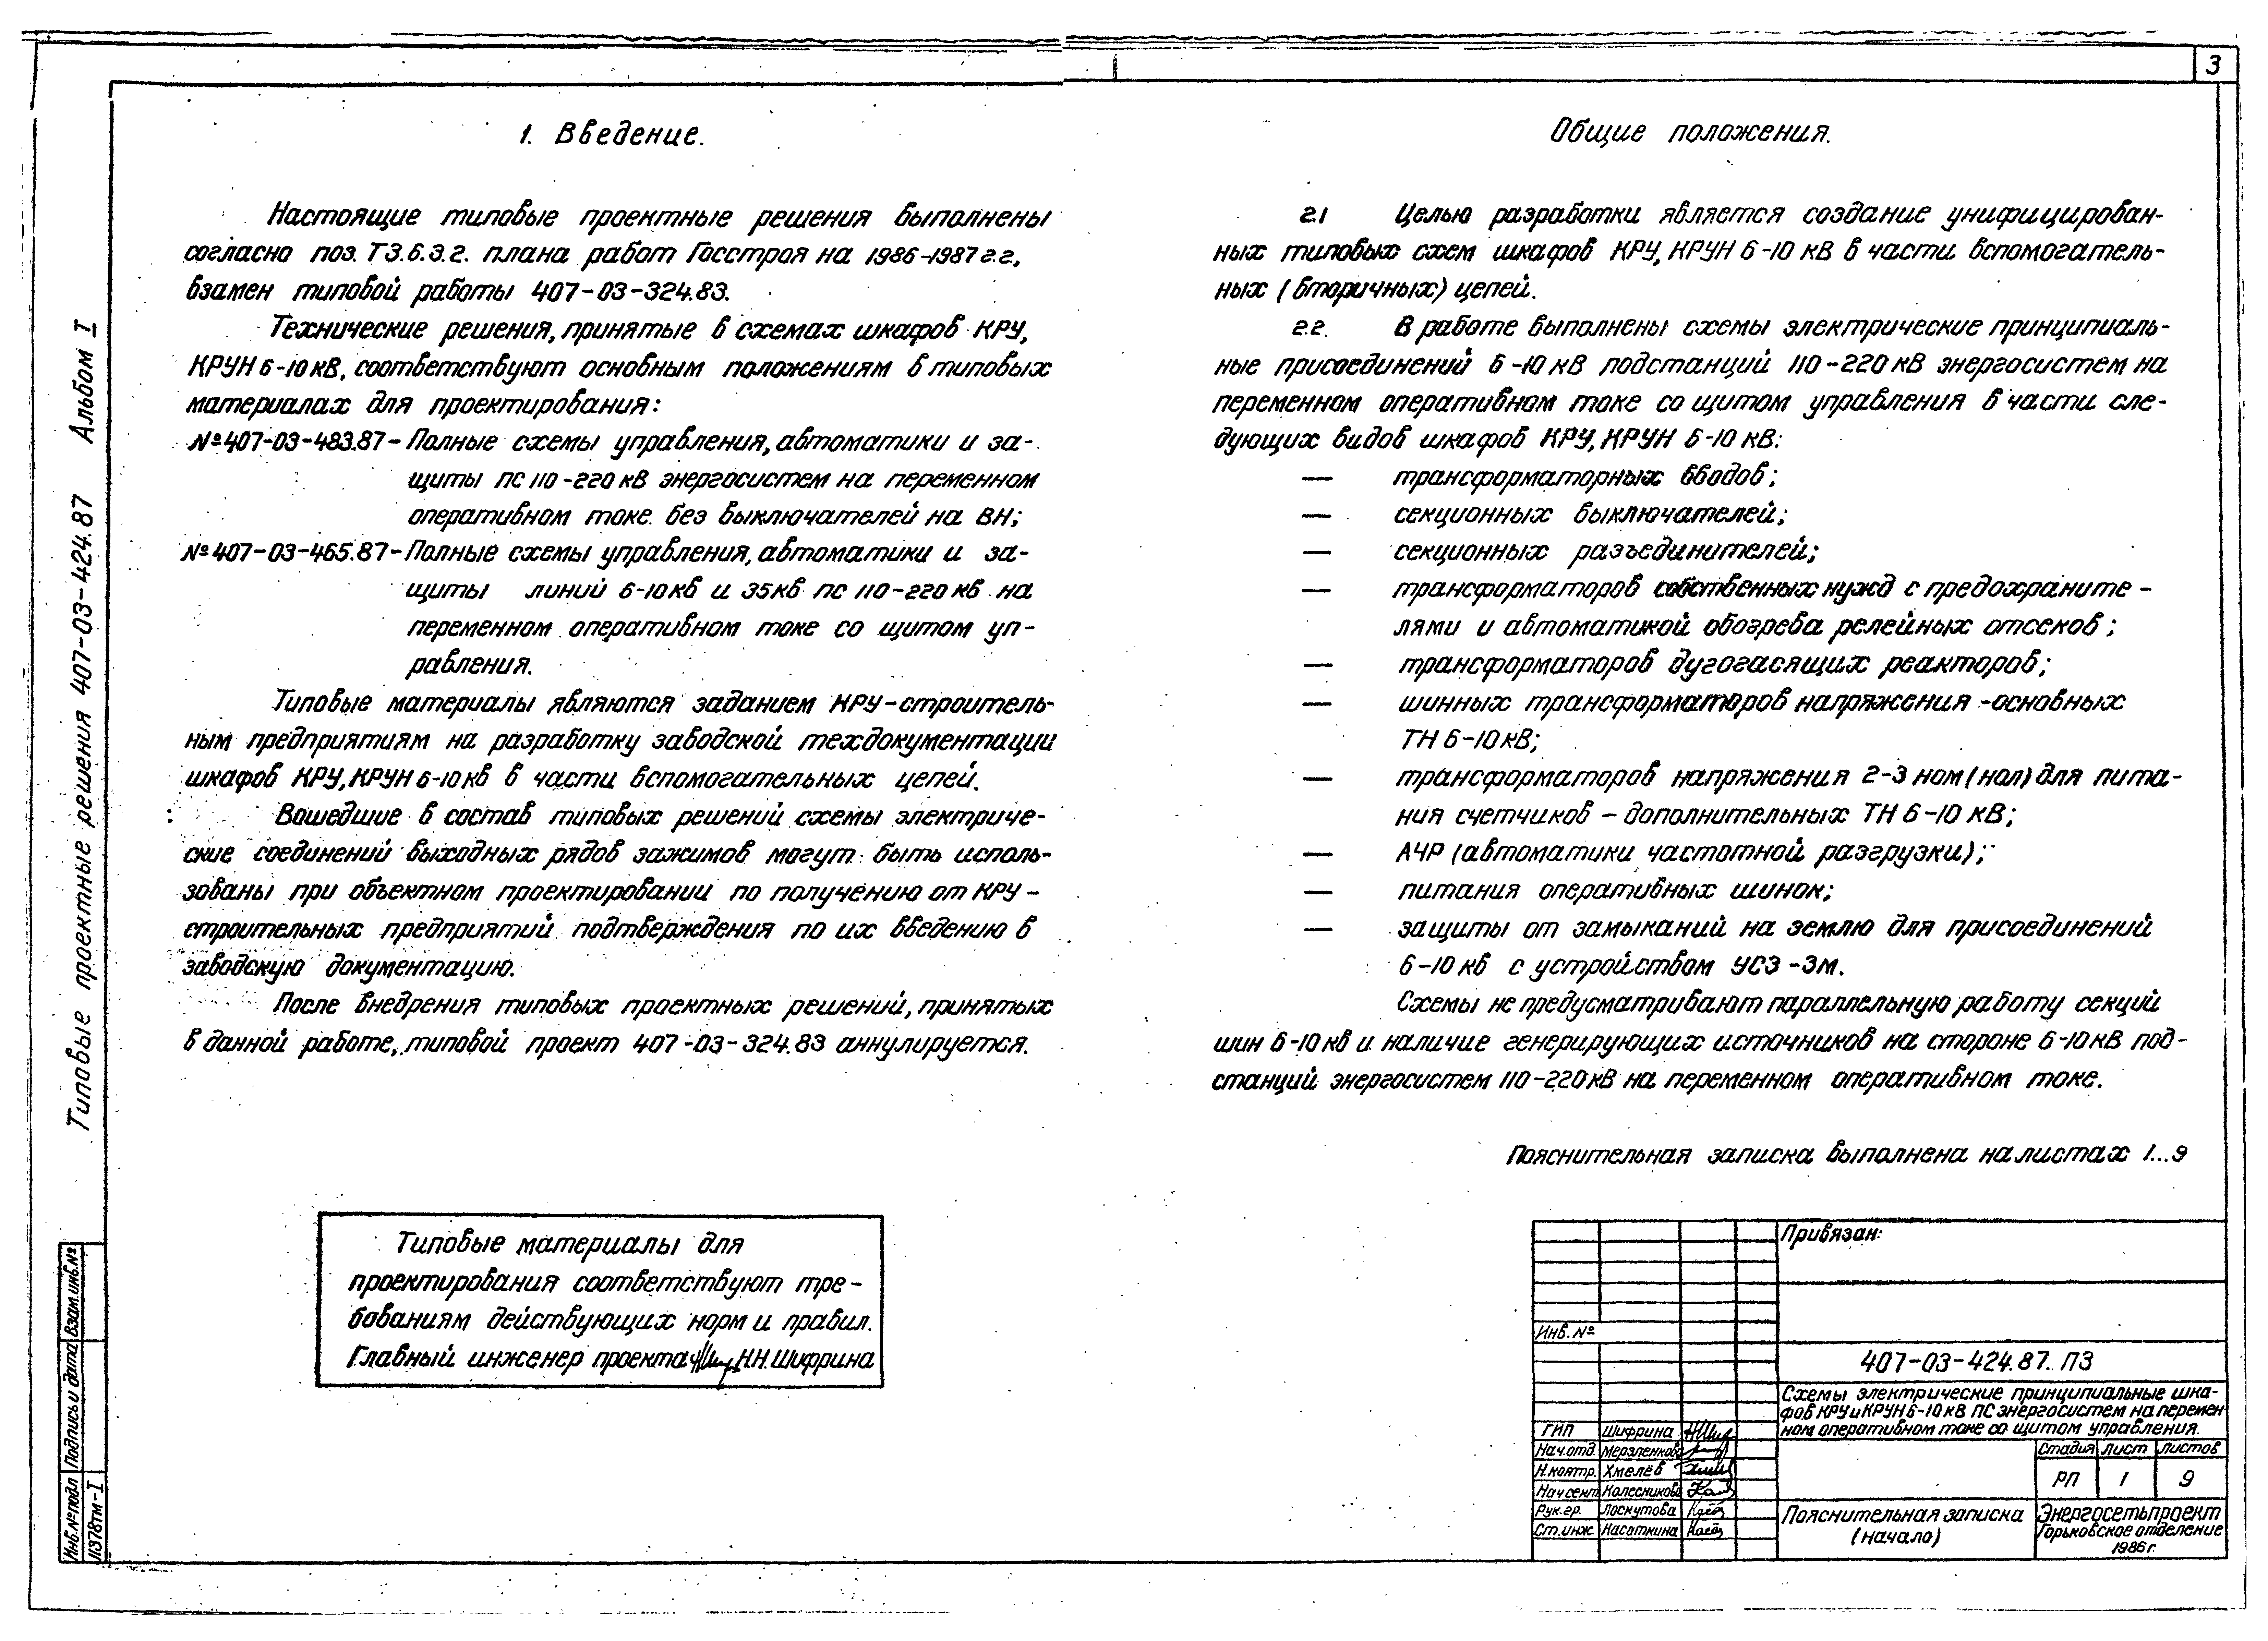 3
Типовые проектные решения 407-03-424.87 Альбом I
1. Введение.
Настоящие типовые проектные решения выполнены
согласно поз. Т3.6.3.2. плана работ Госстроя на 1986-1987 г.г.,
взамен типовой работы 407-03-324.83.
Технические решения, принятые в схемах шкафов КРУ,
КРУН 6-10 кВ, соответствуют основным положениям в типовых
материалах для проектирования:
№407-03-483.87- Полные схемы управления, автоматики и за-
щиты ПС 110-220 кВ энергосистем на переменном
оперативном токе без выключателей на ВН;
№407-03-465.87- Полные схемы управления, автоматики и за-
щиты линий 6-10 кВ и 35 кВ ПС 110-220 кВ на
переменном оперативном токе со щитом уп-
равления.
Типовые материалы являются заданием КРУ-строитель-
ным предприятиям на разработку заводской техдокументации
шкафов КРУ, КРУН 6-10 кВ в части вспомогательных цепей.
Вошедшие в состав типовых решений схемы электриче-
ские соединений выходных рядов зажимов могут быть исполь-
зованы при объектном проектировании по получению от КРУ-
строительных предприятий подтверждения по их введению в
заводскую документацию.
После внедрения типовых проектных решений, принятых
в данной работе, типовой проект 407-03-324.83 аннулируется.
Типовые материалы для
проектирования соответствуют тре-
бованиям действующих норм и правил.
Главный инженер проекта Н.Н. Шифрина
Общие положения.
2.1 Целью разработки является создание унифицирован-
ных типовых схем шкафов КРУ, КРУН 6-10 кВ в части вспомогатель-
ных (вторичных) цепей.
2.2. В работе выполнены схемы электрические принципиаль-
ные присоединений 6-10 кВ подстанций 110-220 кВ энергосистем на
переменном оперативном токе со щитом управления в части сле-
дующих видов шкафов КРУ, КРУН 6-10 кВ:
— трансформаторных вводов;
— секционных выключателей;
— секционных разъединителей;
— трансформаторов собственных нужд с предохраните-
лями и автоматикой обогрева релейных отсеков;
— трансформаторов дугогасящих реакторов;
— шинных трансформаторов напряжения -основных
ТН 6-10 кВ;
— трансформаторов напряжения 2-3 ном (нол) для пита-
ния счетчиков - дополнительных ТН 6-10 кВ;
— АЧР (автоматики частотной разгрузки);
— питания оперативных шинок;
— защиты от замыканий на землю для присоединений
6-10 кВ с устройством УСЗ-3М.
Схемы не предусматривают параллельную работу секций
шин 6-10 кВ и наличие генерирующих источников на стороне 6-10 кВ под-
станций энергосистем 110-220 кВ на переменном оперативном токе.
Пояснительная записка выполнена на листах 1...9
Привязан:
Инв. №
407-03-424.87. ПЗ
Схемы электрические принципиальные шка-
фов КРУ и КРУН 6-10 кВ ПС энергосистем на перемен-
ном оперативном токе со щитом управления.
ГИП Шифрина
Нач.отд. Мерзленкова
Н.контр. Хмелёв
Нач сект Колесникова
Рук.гр. Лоскутова
Ст.инж Касаткина
Стадия лист листов
РП 1 9
Пояснительная записка
(начало)
Энергосетьпроект
Горьковское отделение
1986 г.
Взам.инв.№
Подпись и дата
Инв.№подл
11378тм-I